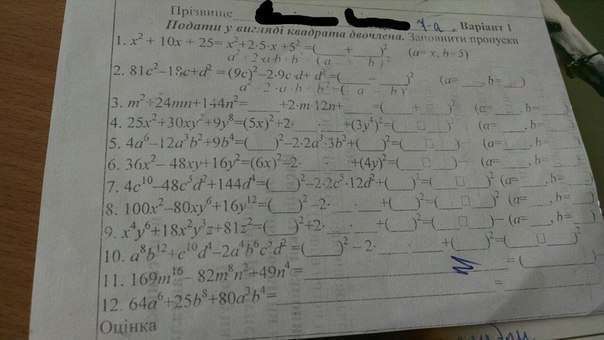 Прізвище 7 а. Варіант 1
Подати у вигляді квадрата двочлена. Заповнити пропуски
1. x² + 10x + 25= x²+2·5·x +5² =(___+___)² (a= x, b=5)
a² + 2 ·a·b + b² = ( a + b )²
2. 81c²–18c+d² = (9c)²–2·9c·d+ d² =(___–___)² (a=__, b=__)
a² - 2 ·a·b + b² =( a – b )²
3. m²+24mn+144n²=____+2·m·12n+____=(__+__)² (a=__, b=__)
4. 25x²+30xy⁴+9y⁸=(5x)²+2·___·___+(3y⁴)²=(___)² (a=__, b=__)
5. 4a⁶–12a³b²+9b⁴=(___)²–2·2a³·3b²+(___)²=(___)² (a=__, b=__)
6. 36x²– 48xy+16y²=(6x)²–2·___·___+(4y)²=(___)– (a=__, b=__)
7. 4c¹⁰–48c⁵d²+144d⁴=(___)²–2·2c⁵·12d²+(___)²=(___)² (a=__, b=__)
8. 100x²–80xy⁶+16y¹²=(___)²–2·___·___+(___)²=(___)² (a=__, b=__)
9. x⁴y⁶+18x²y³z+81z²=(___)²+2·___·___+(___)²=(___)– (a=__, b=__)
10. a⁸b¹²+c¹⁰d⁴–2a⁴b⁶c⁵d²=(___)² – 2·___·___+(___)²=(___)²
11. 169m¹⁶– 82m⁸n²+49n⁴=____=(____)
12. 64a⁶+25b⁸+80a³b⁴=____
Оцінка